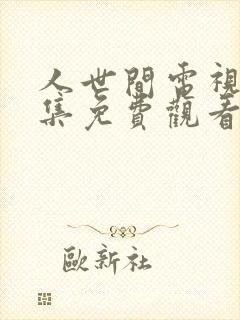 人世間電視
集免費觀看
歐新社